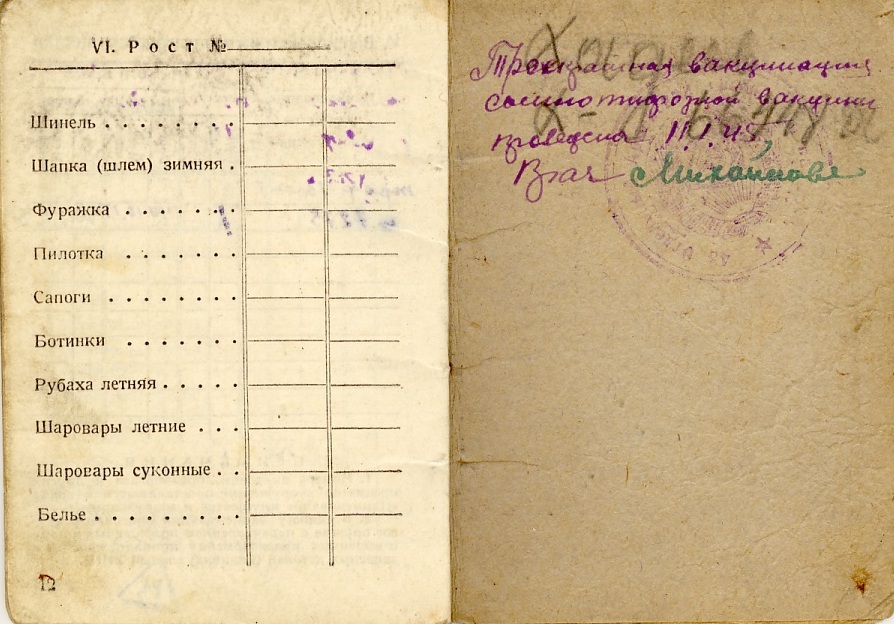 VI. Рост №
Шинель . . . . . . . .
Шапка (шлем) зимняя .
Фуражка . . . . . . .
Пилотка . . . . . . .
Сапоги . . . . . . . .
Ботинки . . . . . . .
Рубаха летняя . . . . .
Шаровары летние . . .
Шаровары суконные . .
Белье . . . . . . . . .
12
Трехкратная вакцинация
сыпнотифозной вакцины
проведена 11.I.45,
Врач